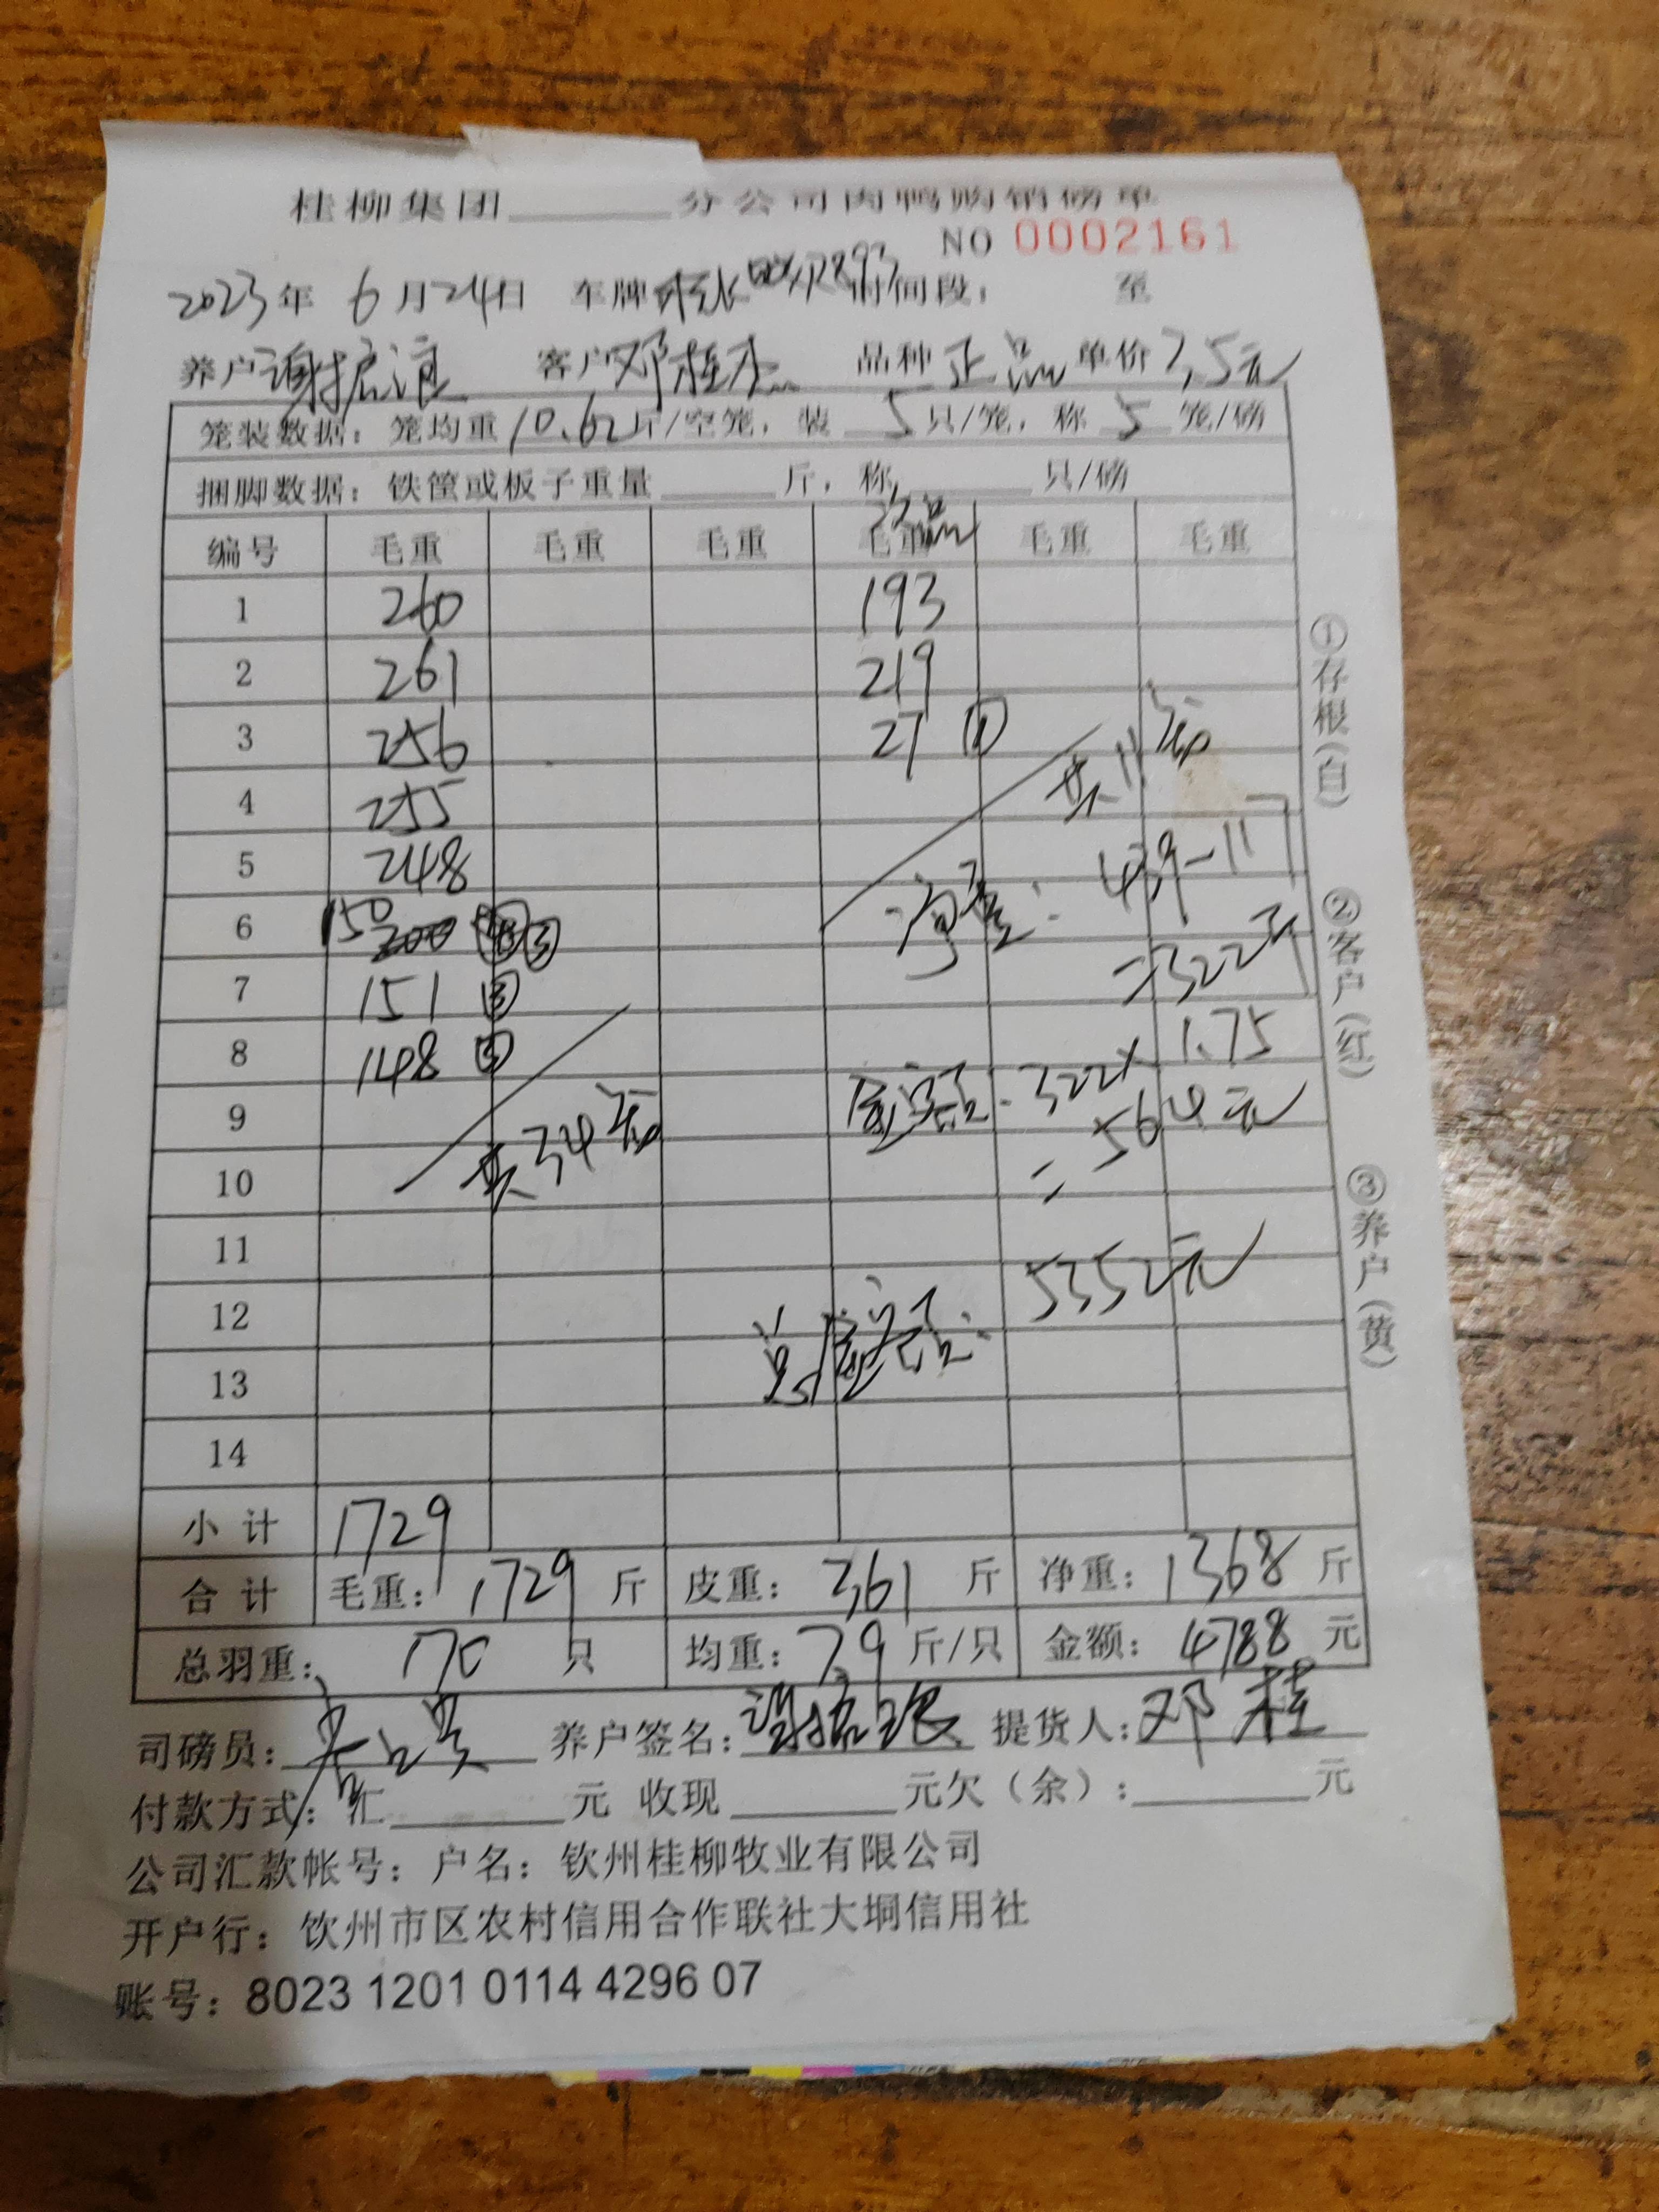 桂柳集团 分公司肉鸭购销磅单
NO 0002161
2023年 6月24日 车牌 时间段: 至
养户 谢振浪 客户 邓桂 品种 正品 单价 3,5元
笼装数据: 笼均重 10.62 斤/空笼, 装 5 只/笼, 称 5 笼/磅
捆脚数据: 铁筐或板子重量 斤, 称 只/磅
次品
编号 毛重 毛重 毛重 毛重 毛重 毛重
1 260 193
2 261 219
3 256 27 ①
4 255 共11笼
5 248 净重: 439-11
6 150 200 ③ =322斤
7 151 ③
8 148 ③ 金额: 322×1.75
9 共34笼 =564元
10
11
12 总金额: 5352元
13
14
小计 1729
合计 毛重: 1729 斤 皮重: 361 斤 净重: 1368 斤
总羽重: 170 只 均重: 7.9 斤/只 金额: 4788 元
司磅员: 养户签名: 谢振浪 提货人: 邓桂
付款方式: 汇 元 收现 元欠(余): 元
公司汇款帐号: 户名: 钦州桂柳牧业有限公司
开户行: 钦州市区农村信用合作联社大垌信用社
账号: 8023 1201 0114 4296 07
①存根(白) ②客户(红) ③养户(黄)